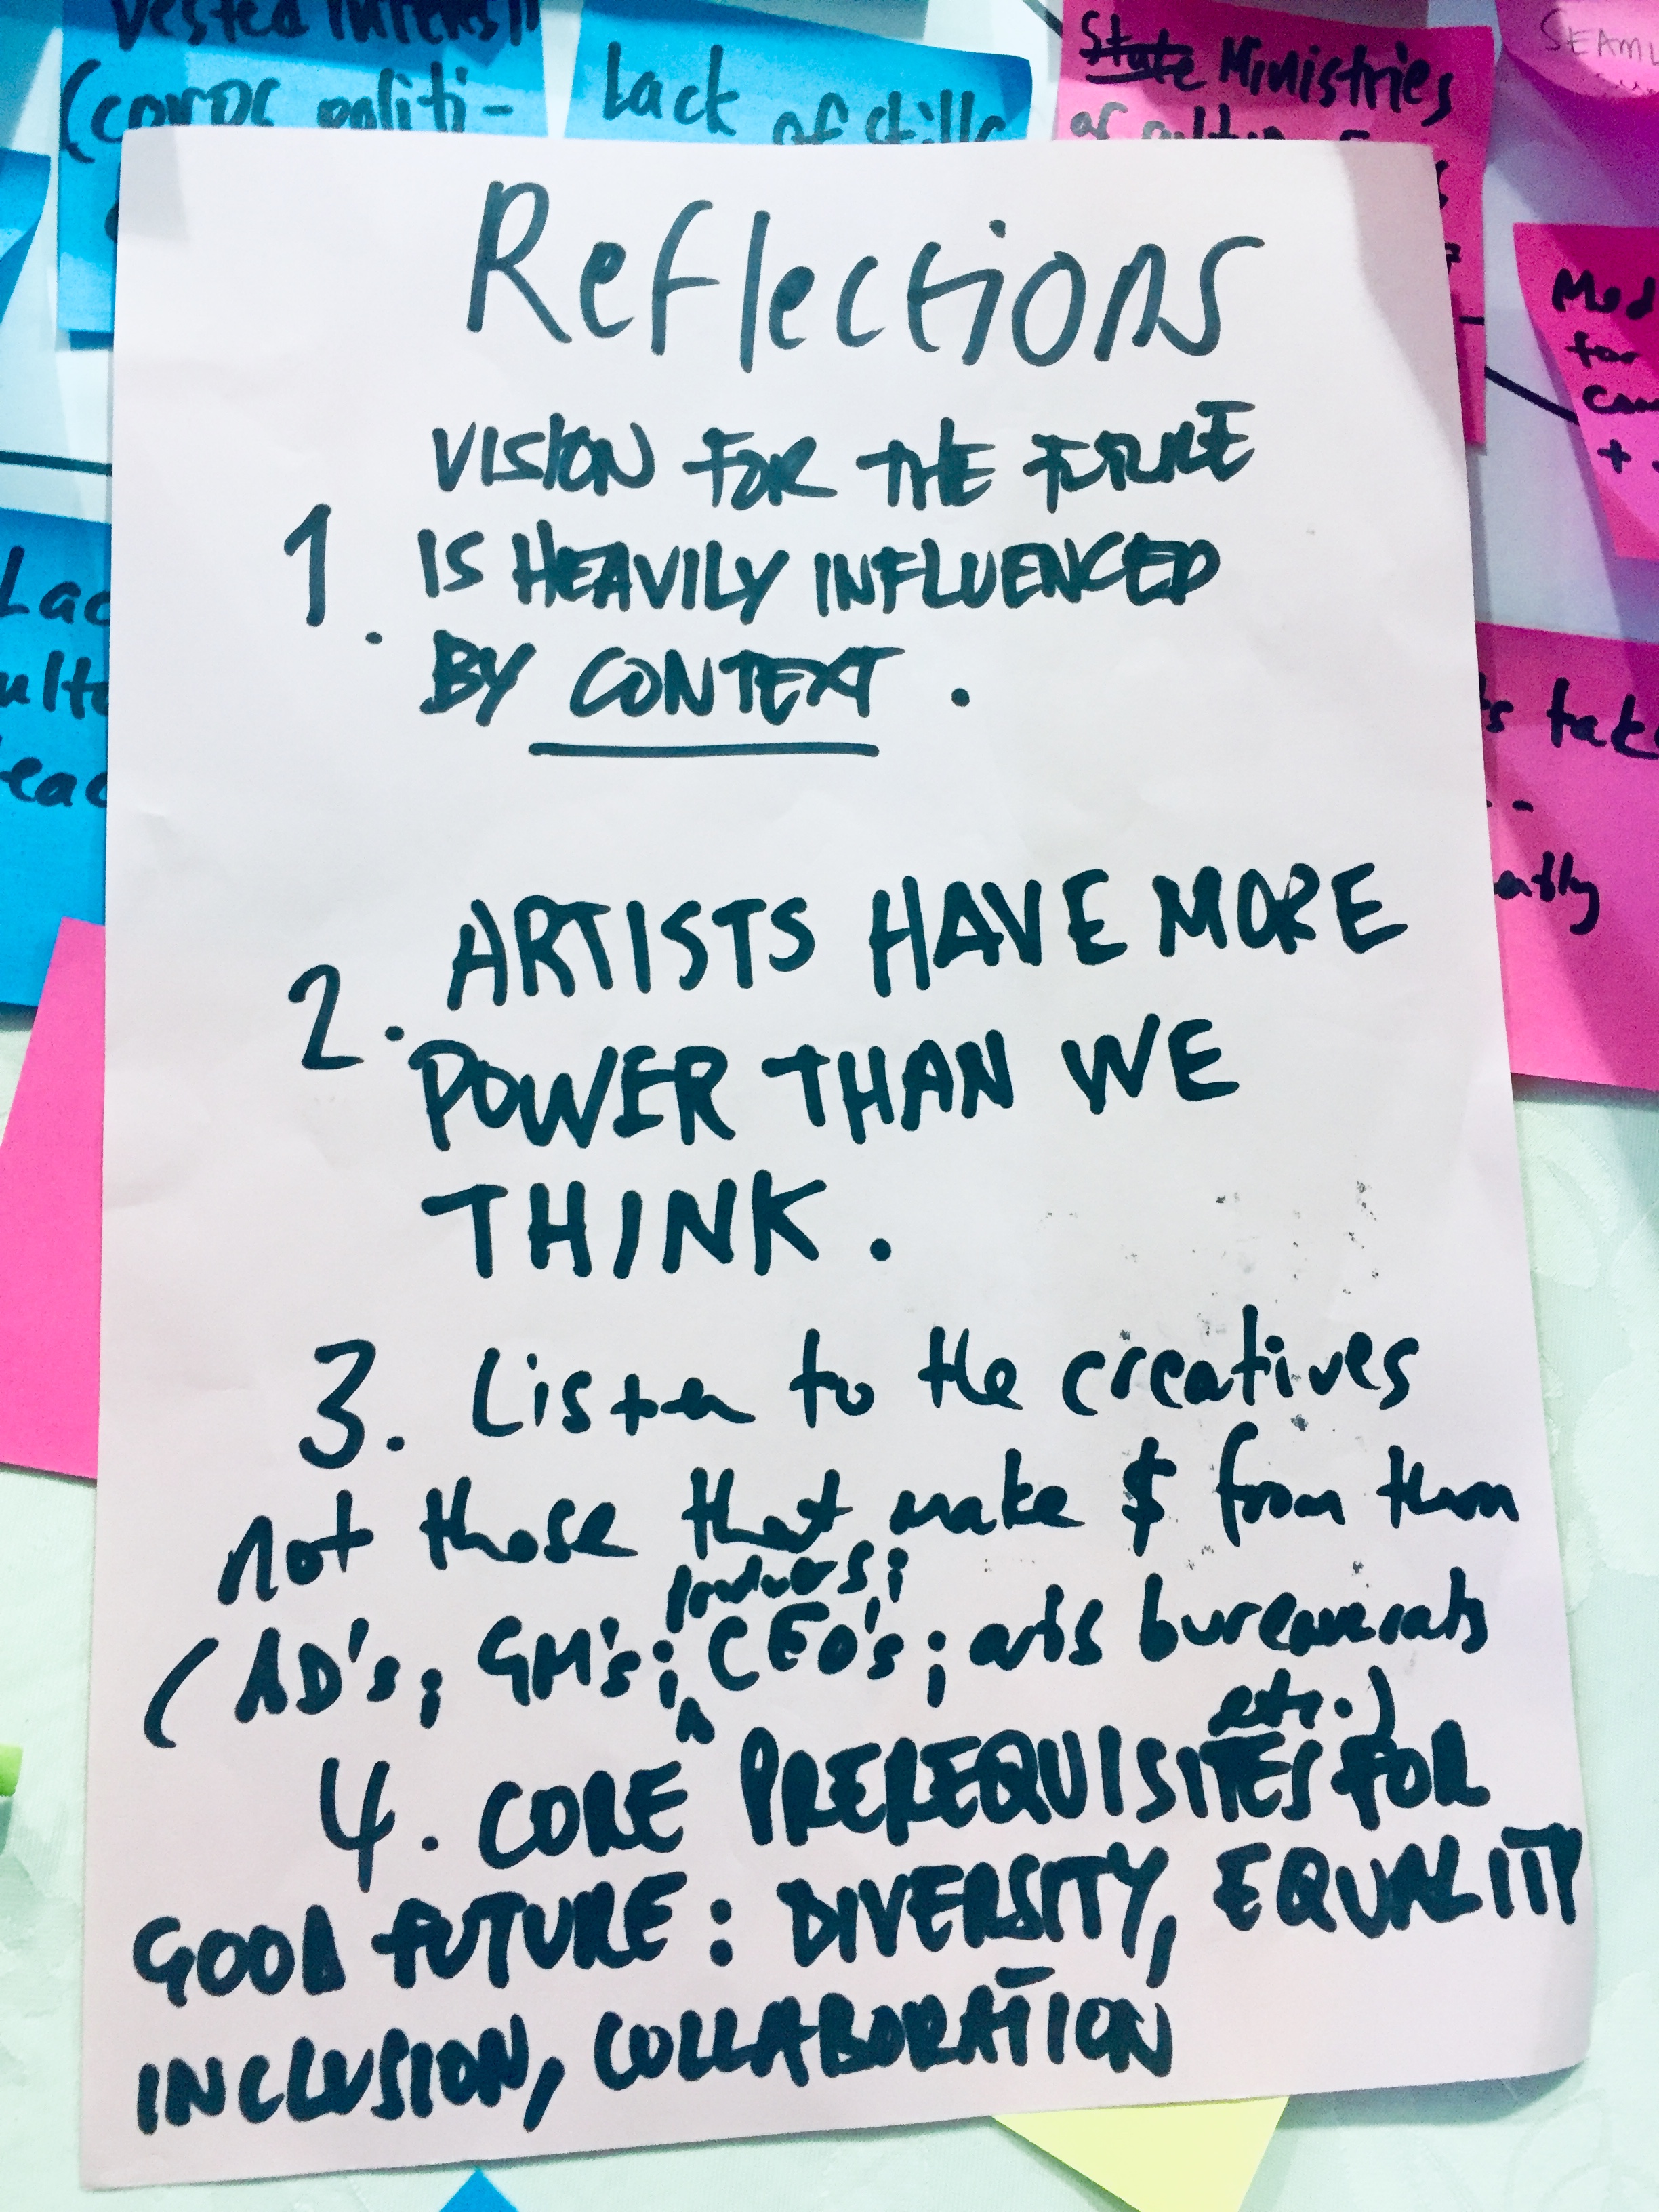 Vested
(corps politi-
Lack of skills
State Ministries
of
Reflections
1. VISION FOR THE FUTURE
IS HEAVILY INFLUENCED
BY CONTEXT.
2. ARTISTS HAVE MORE
POWER THAN WE
THINK.
3. Listen to the creatives
not those that make $ from them
(AD's; GM's; producers; CEO's; arts bureaucrats
etc.)
4. CORE PREREQUISITES FOR
GOOD FUTURE: DIVERSITY, EQUALITY
INCLUSION, COLLABORATION
for
+